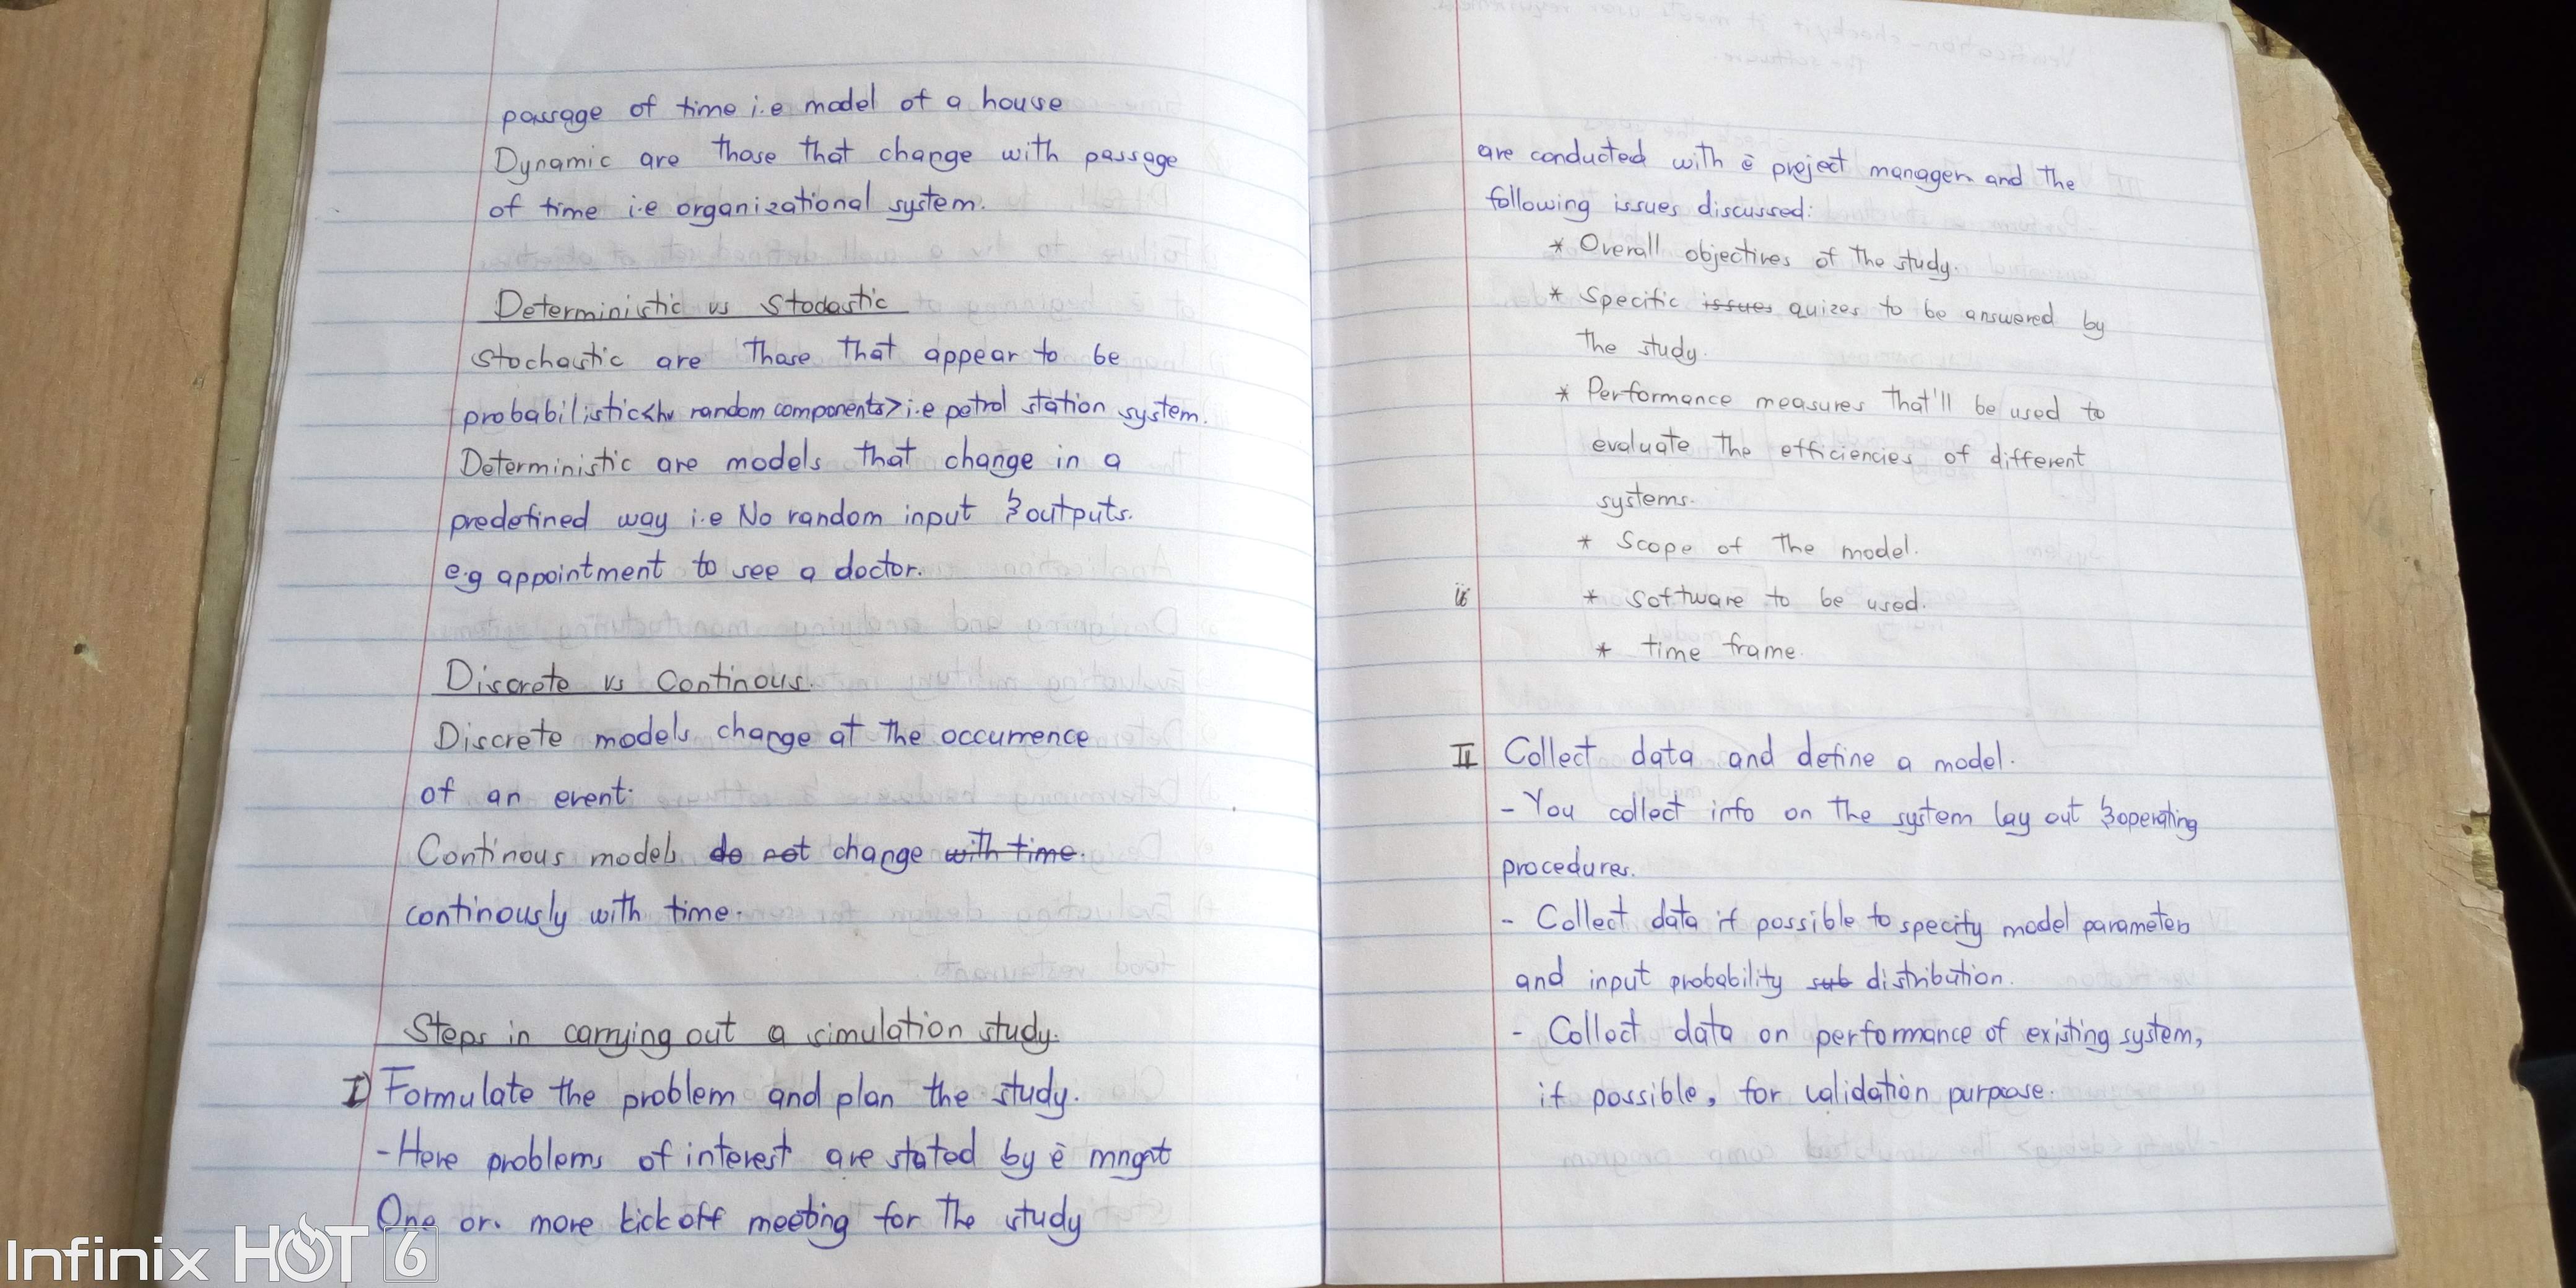 passage of time i.e model of a house
Dynamic are those that change with passage
of time i.e organizational system.
Deterministic vs Stodastic
stochastic are those that appear to be
probabilistic<hv random components> i.e petrol station system.
Deterministic are models that change in a
predefined way i.e No random input & outputs.
e.g appointment to see a doctor.
Discrete vs Continous.
Discrete models change at the occurrence
of an event.
Continous models do not change with time.
continously with time.
Steps in carrying out a simulation study.
I) Formulate the problem and plan the study.
- Here problems of interest are stated by ē mngnt
One or more kick off meeting for the study
are conducted with ē project manager and the
following issues discussed:
* Overall objectives of the study.
* Specific issues quizes to be answered by
the study.
* Performance measures that'll be used to
evaluate the efficiencies of different
systems.
* Scope of the model.
* Software to be used.
* time frame.
II Collect data and define a model.
- You collect info on the system lay out & operating
procedures.
- Collect data if possible to specify model parameters
and input probability sub distribution.
- Collect data on performance of existing system,
if possible, for validation purpose.
Infinix HOT 6